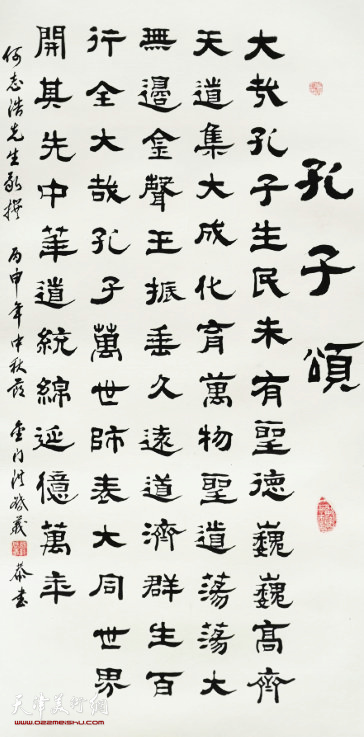 孔子頌
大哉孔子生民未有聖德巍巍高齊
天道集大成化育萬物聖道蕩蕩大
無邊金聲玉振垂久遠道濟群生百
行全大哉孔子萬世師表大同世界
開其先中華道統綿延億萬年
何志浩先生敬撰 丙申年中秋節 金門洪義 恭書
天津美術網
www.022meishu.com